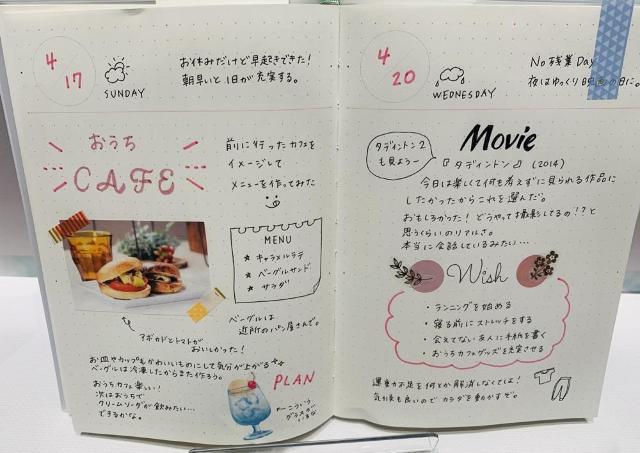 4/17
SUNDAY
お休みだけど早起きできた!
朝早いと1日が充実する。
おうち
CAFE
前に行ったカフェを
イメージして
メニューを作ってみた
MENU
★ キャラメルラテ
★ ベーグルサンド
★ サラダ
ベーグルは
近所のパン屋さんで。
アボカドとトマトが
おいしかった!
お皿やカップもかわいいものにして気分が上がる
ベーグルは冷凍したからまた作ろう。
おうちカフェ楽しい!
次はおうちで
クリームソーダが飲みたい…
できるかな。
PLAN
こういう
グラスが
いるな
4/20
WEDNESDAY
No 残業 Day
夜はゆっくり映画の日に。
Movie
タディントン2
も見よう
『タディントン』(2014)
今日は楽しくて何も考えずに見られる作品に
したかったからこれを選んだ。
おもしろかった! どうやって撮影してるの!?と
思うくらいのリアルさ。
本当に会話しているみたい…
Wish
・ランニングを始める
・寝る前にストレッチをする
・会えてない友人に手紙を書く
・おうちカフェグッズを充実させる
運動不足を何とか解消しなくては!
気候も良いのでカラダを動かすぞ。